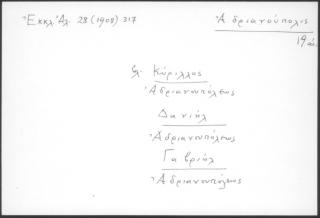 Ἐκκλ. Ἀλ. 28 (1908) 317
Ἀδριανούπολις
19 αἰ.
Κύριλλος
Ἀδριανουπόλεως
Δανιήλ
Ἀδριανουπόλεως
Γαβριήλ
Ἀδριανουπόλεως